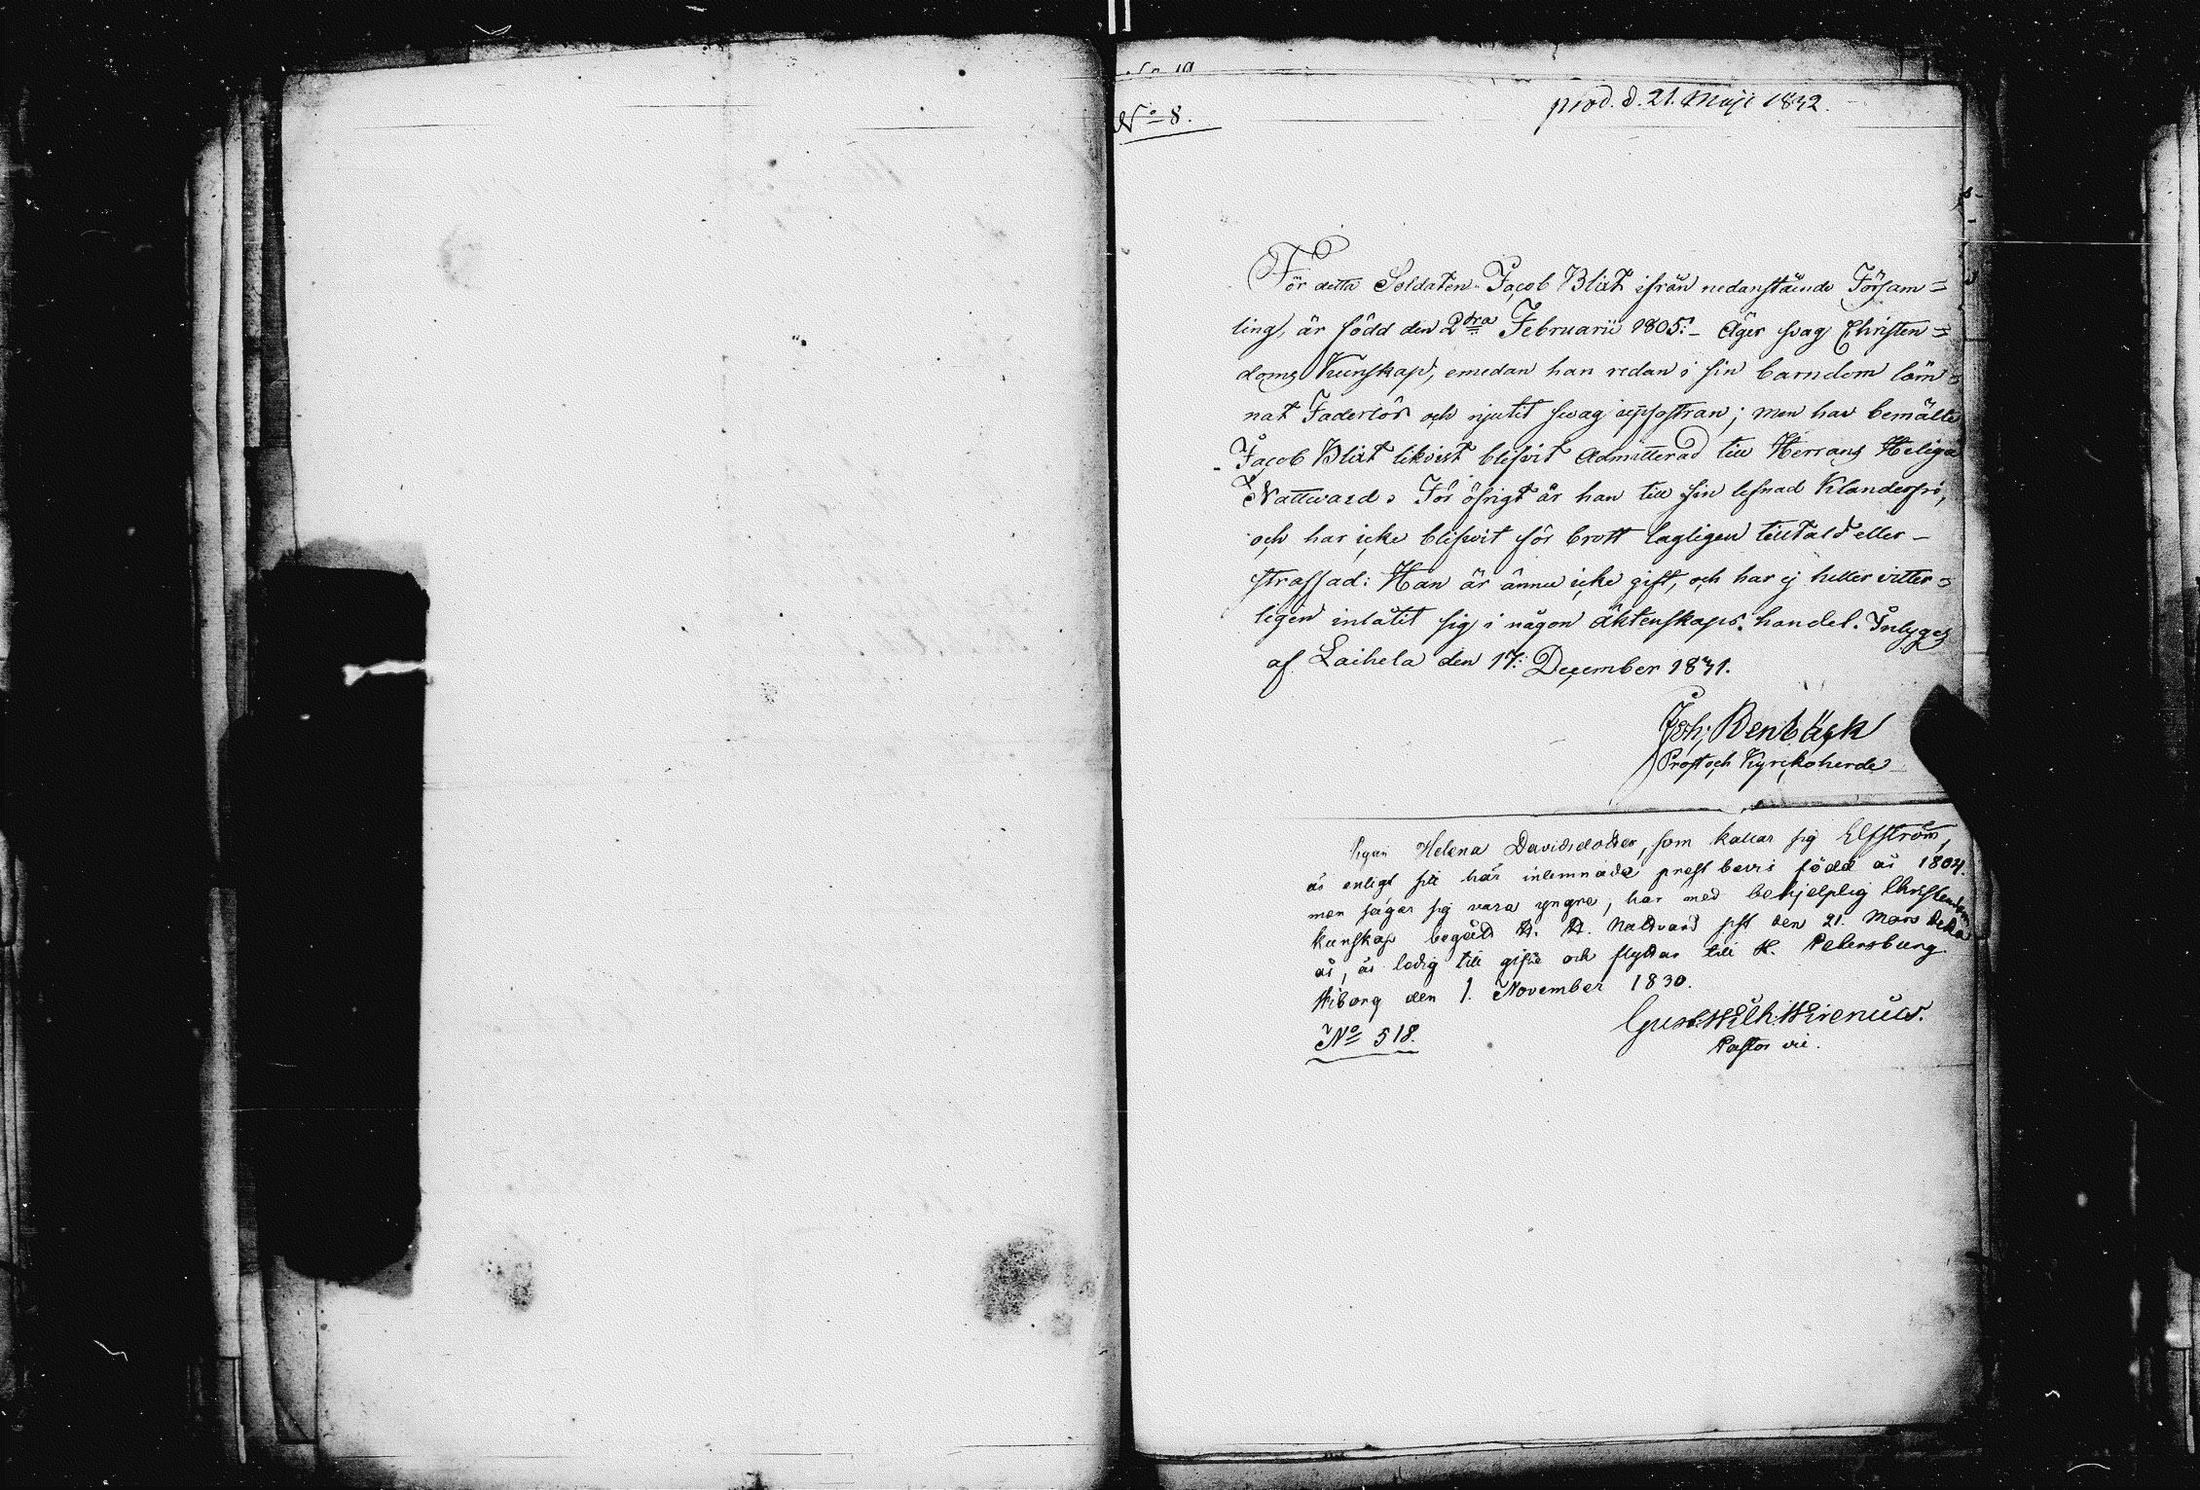 No 8.
prod. d. 21. Maji 1832.
För detta Soldaten Jacob Blixt ifrån nedanstående Försam=
ling, är född den 2dra Februarii 1805:- Äger svag Christen=
doms Kunskap, emedan han redan i sin barndom läm=
nat Faderlös och njutit svag uppfostran; men har bemälte
Jacob Blixt likväst blifvit Admitterad till Herrans Heliga
Nattward. För öfrigt är han till sin lefnad Klanderfri,
och har icke blifvit för brott lagligen tilltald eller -
straffad: Han är ännu icke gift, och har ej heller vitter=
ligen inlåtit sig i någon äktenskaps-handel. Intygas
af Laihela den 17: December 1831.
Joh: Benbäck
Prost och Kyrckoherde
Pigan Helena Davidsdotter, som kallar sig Elfström,
är enligt sitt här inlemnade prest bevis född år 1804.
men säger sig vara yngre, har med behjelplig Christendoms
kunskap begått H. H. Nattvard sist den 21. Mars detta
år, är ledig till gifte och flyttar till St. Petersburg.
Wiborg den 1. November 1830.
No 518.
Gust: Wilh: Wirenius.
Pastor vic.